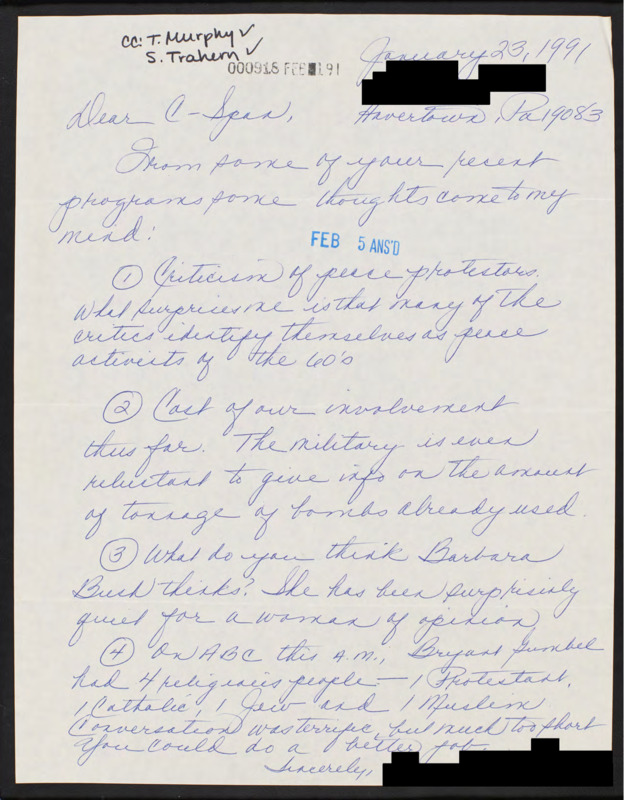 cc: T. Murphy ✓
S. Trahern ✓
000918 FEB 191
January 23, 1991
Havertown, Pa 19083
Dear C-Span,
From some of your recent
programs some thoughts come to my
mind:
FEB 5 ANS'D
① Criticism of peace protestors.
What surprises me is that many of the
critics identify themselves as peace
activists of the 60's
② Cost of our involvement
thus far. The military is even
reluctant to give info on the amount
of tonnage of bombs already used.
③ What do you think Barbara
Bush thinks? She has been surprisinly
quiet for a woman of opinion
④ On ABC this A.M., Bryant Gumbel
had 4 religious people — 1 Protestant,
1 Catholic, 1 Jew and 1 Muslim
Conversation was terrific, but much too short
You could do a better job.
Sincerely,